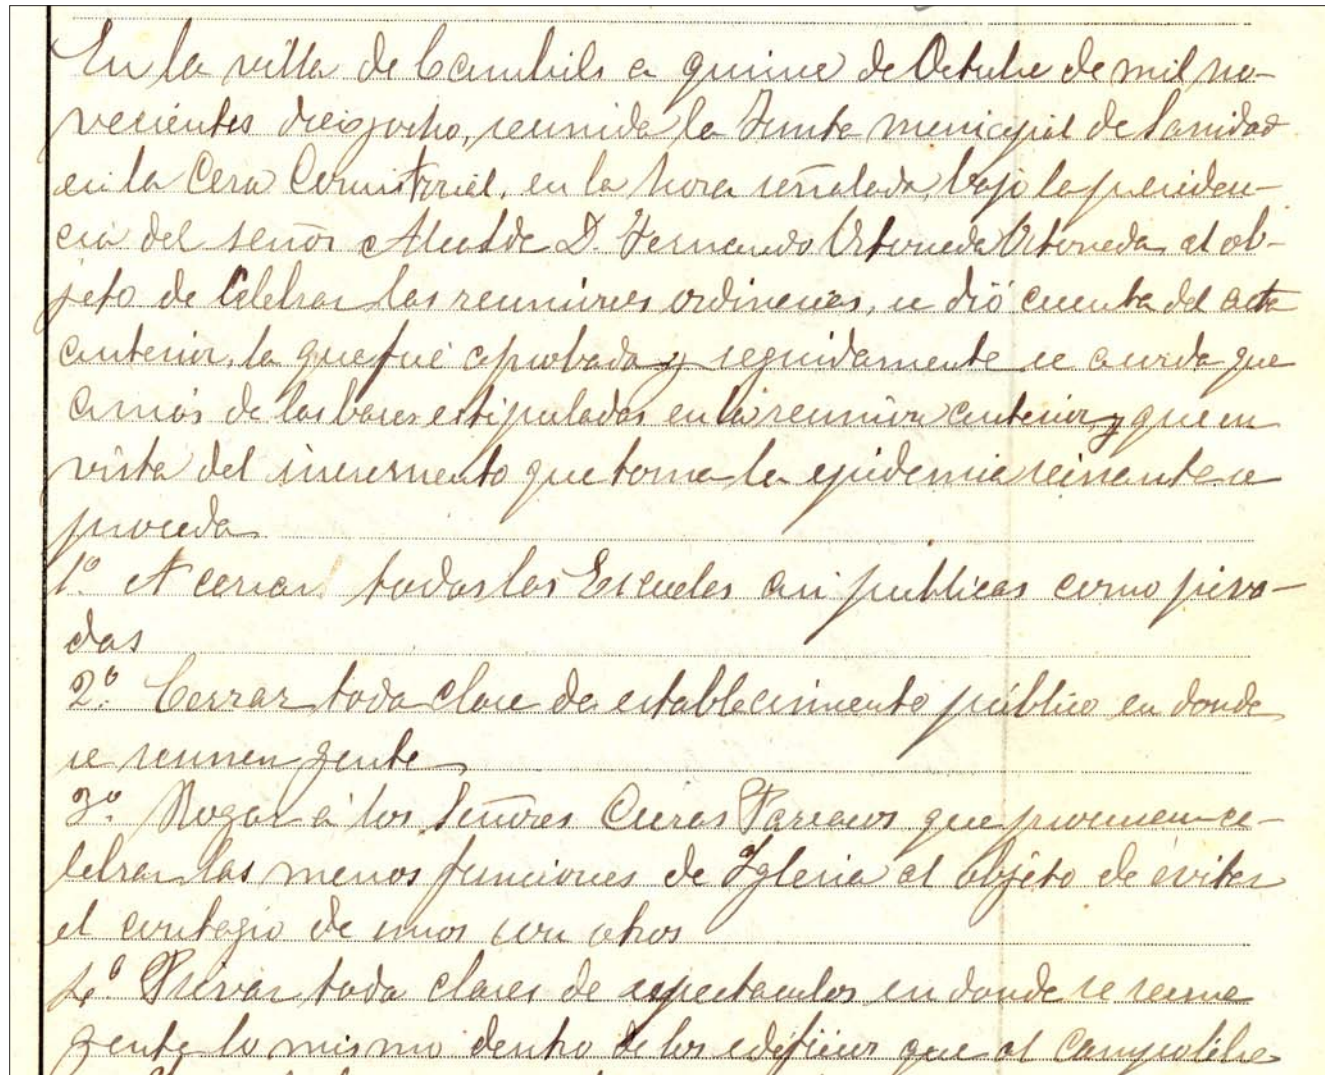 En la villa de Cambrils a quince de Octubre de mil no-
vecientos dieziocho, reunida la Junta municipal de Sanidad
en la Casa Consistorial, en la hora señalada, bajo la presiden-
cia del señor Alcalde D. Fernando Ortoneda Ortoneda, al ob-
jeto de Celebrar las reuniones ordinarias, se dió cuenta del acta
anterior, la que fué aprobada y seguidamente se acuerda que
a mas de las bases estipuladas en la reunion anterior y que en
vista del incremento que toma la epidemia reinante se
proceda
1º A cerrar todas las Escuelas asi publicas como priva-
das
2º Cerrar toda clase de establecimiento público en donde
se reunen gente
3º Rogar á los Señores Curas Parracos que procuren ce-
lebrar las menos funciones de Iglesia al objeto de evitar
el contagio de unos con otros
4º Privar toda clases de espectaculos en donde se reune
gente lo mismo dentro de los edificios que al Campo libre